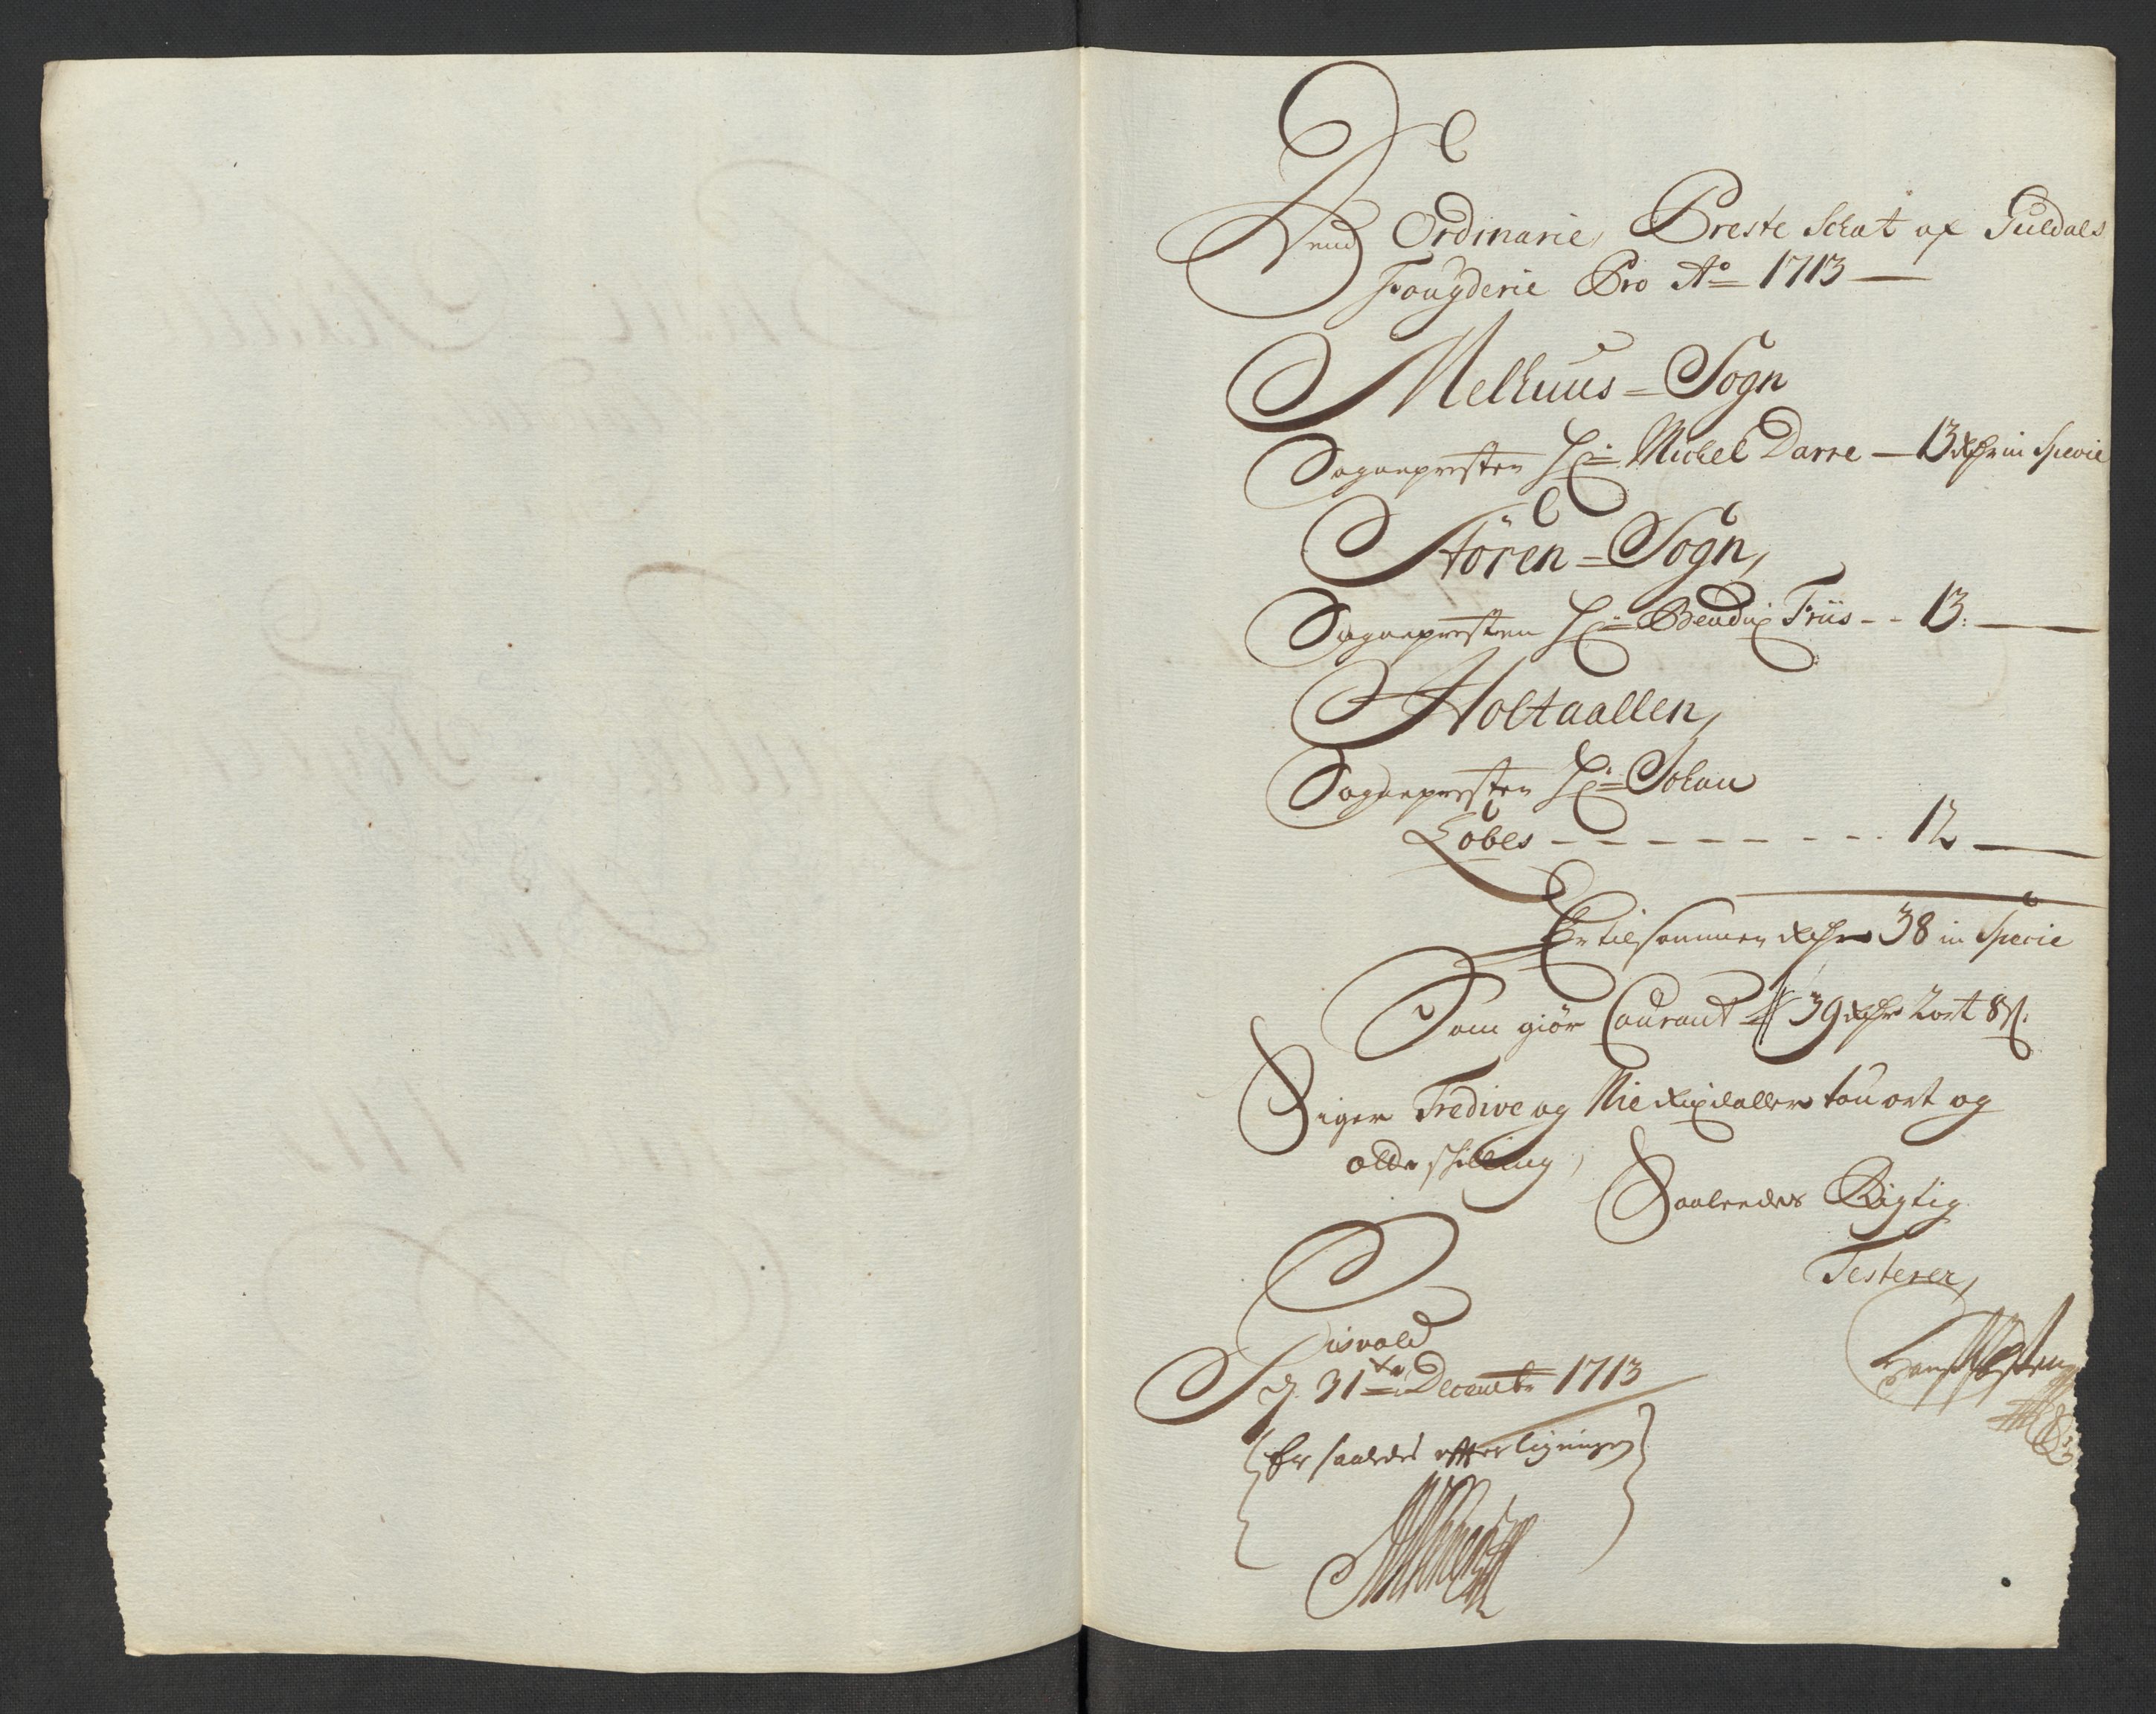 Dend Ordinarie Preste Schat af Guldals
Fougderie Pro Ao 1713
Melhuus = Sogn
Sognepresten Hr: Michel Darre — 13 Rdr in Specie
Stören = Sogn,
Sognepresten Hr: Bendix Friis - - 13: —
Holtaallen,
Sognepresten Hr: Johan
Löbes - - - - - - - - 12 —
Er tilsammen Rdr 38 in Specie
Som giör Courant 39 Rdr 2 ort 8 s.
Siger Tredive og Nie Rixdaller tou ort og
otte skilling,
Saaledes Rigtig
Testerer,
Gisvold
d. 31te Decembr 1713
Er saaledes effter ligningen